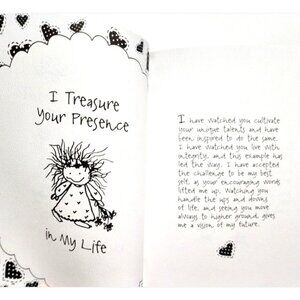 I Treasure
your Presence
in My Life
I have watched you cultivate
your unique talents and have
been inspired to do the same.
I have watched you live with
integrity, and this example has
led the way. I have accepted
the challenge to be my best
self, as your encouraging words
lifted me up. Watching you
handle the ups and downs
of life, and seeing you move
always to higher ground, gives
me a vision of my future.